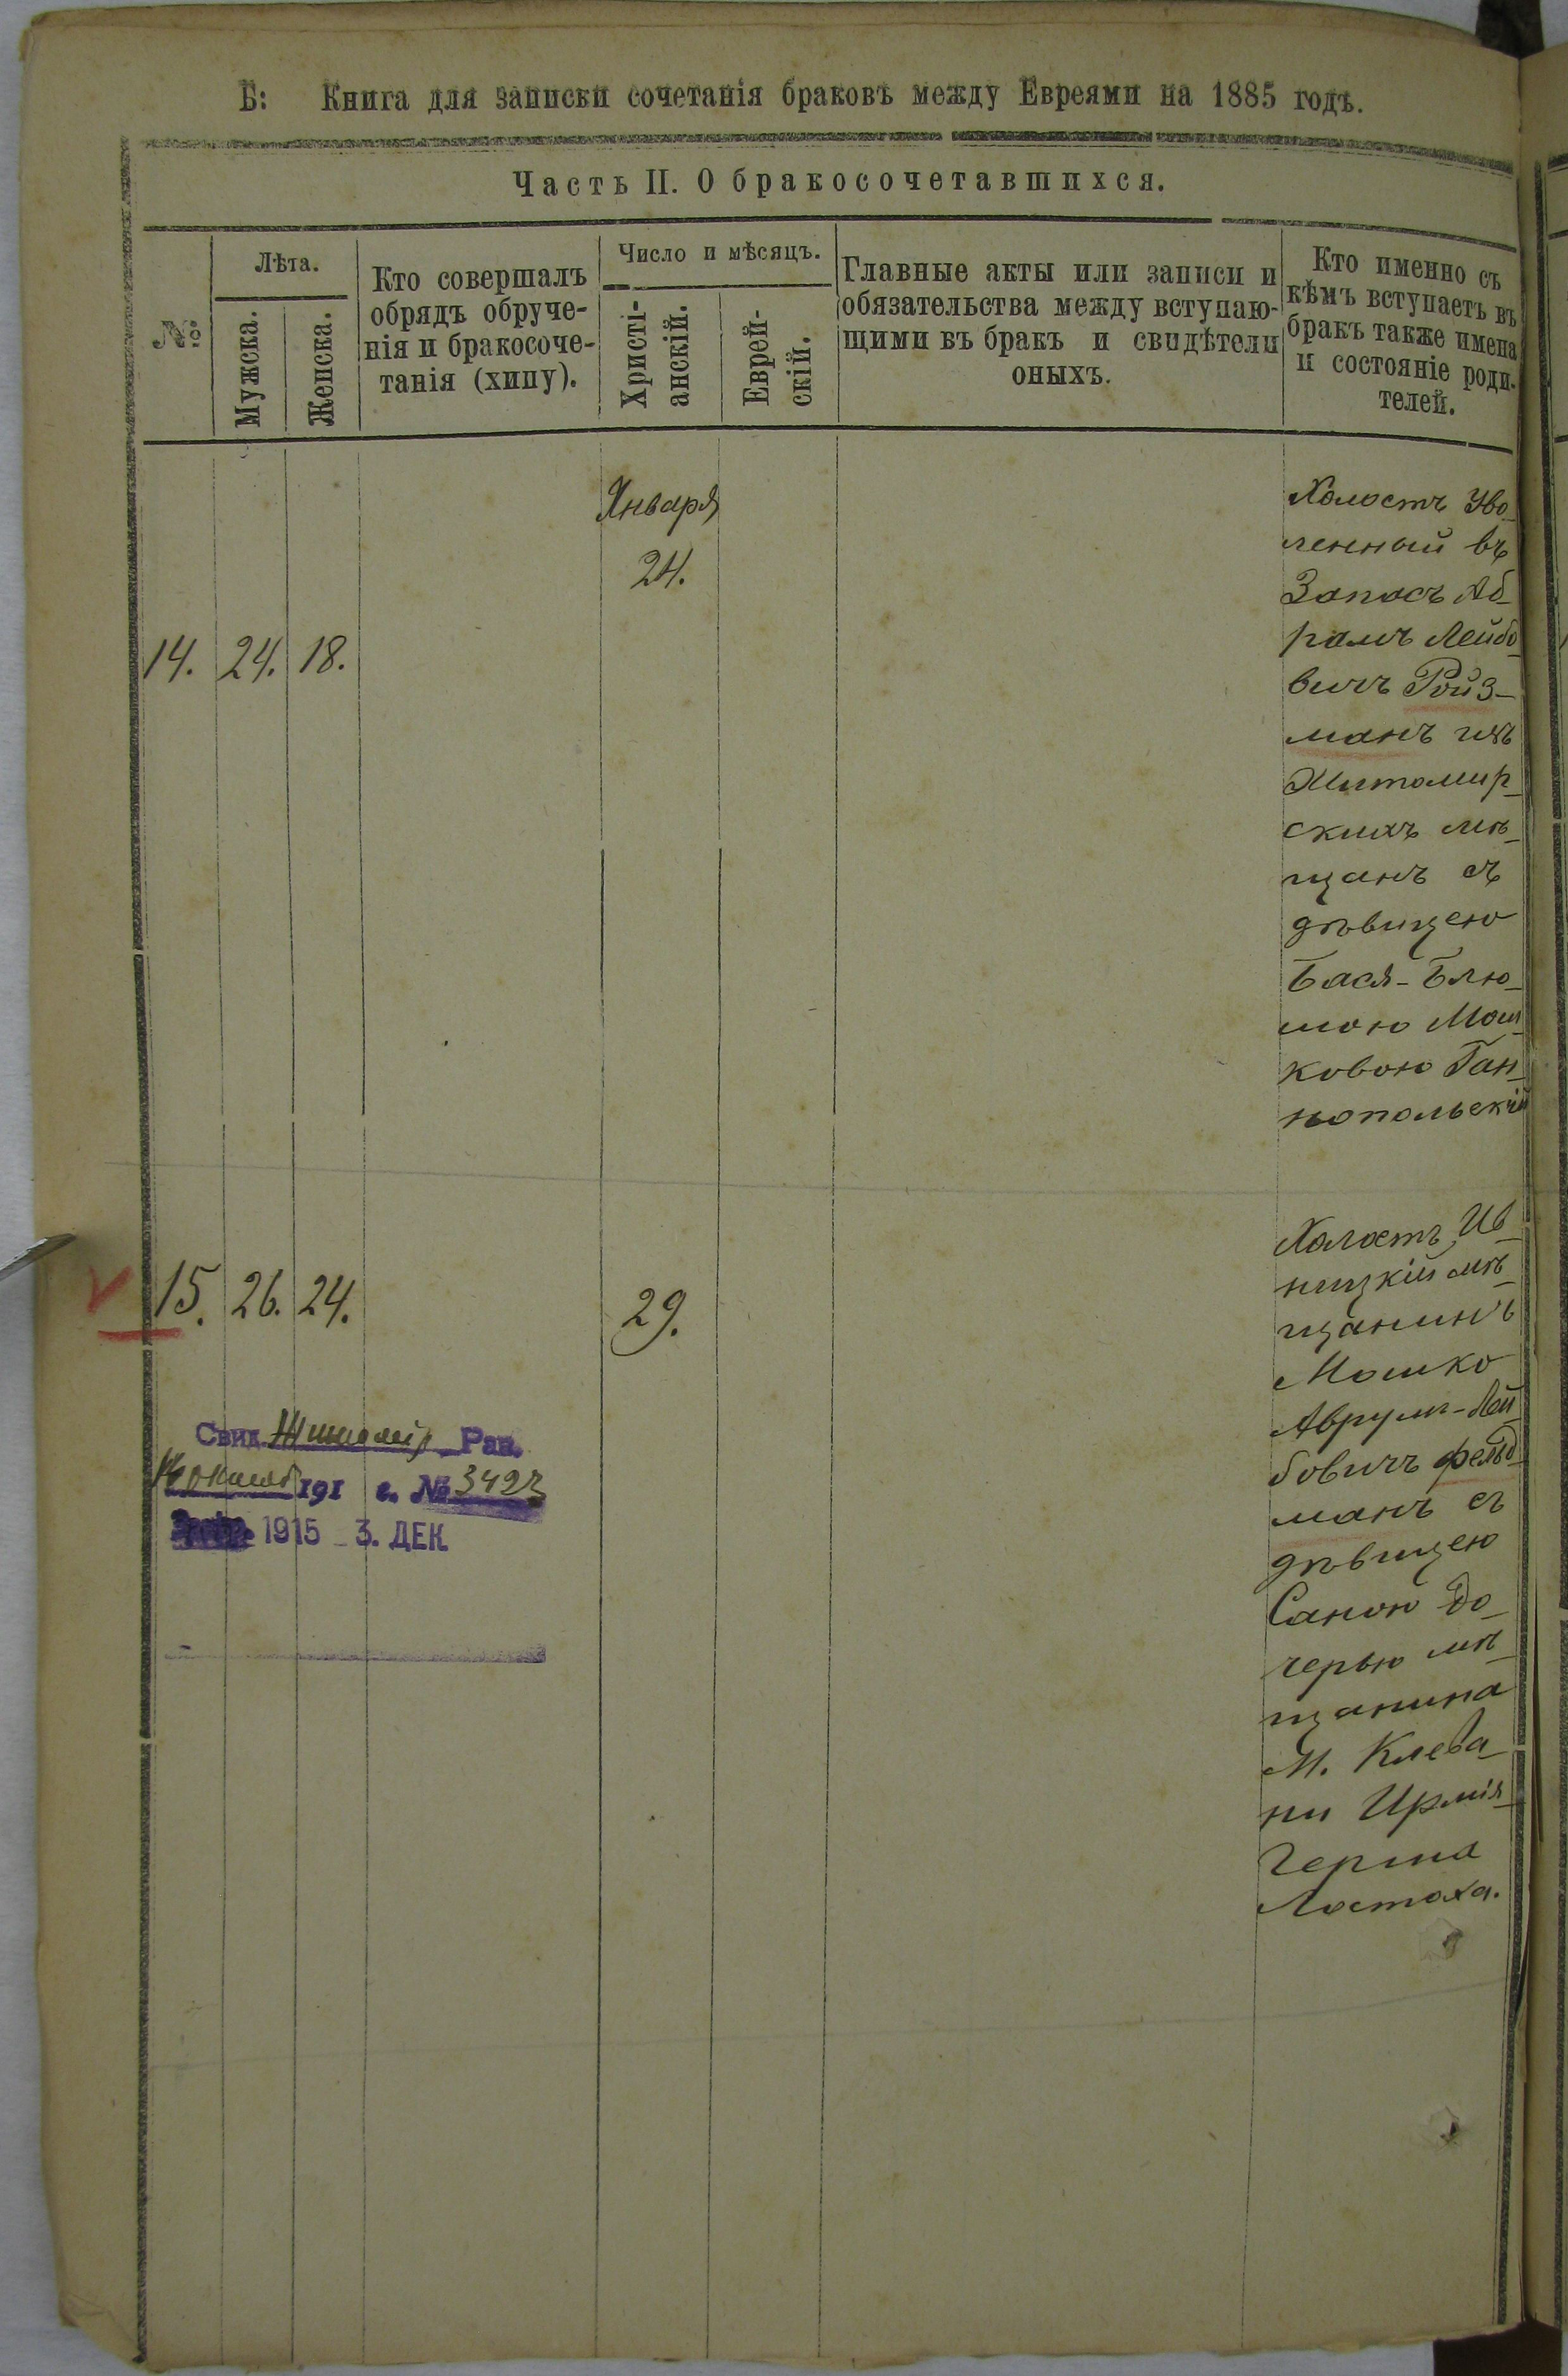 Б: Книга для записки сочетанія браковъ между Евреями на 1885 годъ.
Часть II. О бракосочетавшихся.
№
Лѣта.
Мужска.
Женска.
Кто совершалъ
обрядъ обруче-
нія и бракосоче-
танія (хипу).
Число и мѣсяцъ.
Христі-
анскій.
Еврей-
скій.
Главные акты или записи и
обязательства между вступаю-
щими въ бракъ и свидѣтели
оныхъ.
Кто именно съ
кѣмъ вступаетъ въ
бракъ также имена
и состояніе роди-
телей.
14. 24. 18.
Января
24.
Холостъ Уво-
ленный въ
Запасъ Аб-
рамъ Лейбо-
вичъ Ройз-
манъ изъ
Житомир-
скихъ мѣ-
щанъ съ
дѣвицею
Бася-Блю-
мою Мош-
ковою Ган-
нопольскій
15. 26. 24.
29.
Холостъ Ив-
ницкій мѣ-
щанинъ
Мошко
Аврум-Лей-
бовичъ Фельд-
манъ съ
дѣвицею
Саною до-
черью мѣ-
щанина
М. Клева-
ни Ирмія-
Герша
Лостоха.
Свид. Житомір Рав.
191 г. № 3492
1915 3. ДЕК